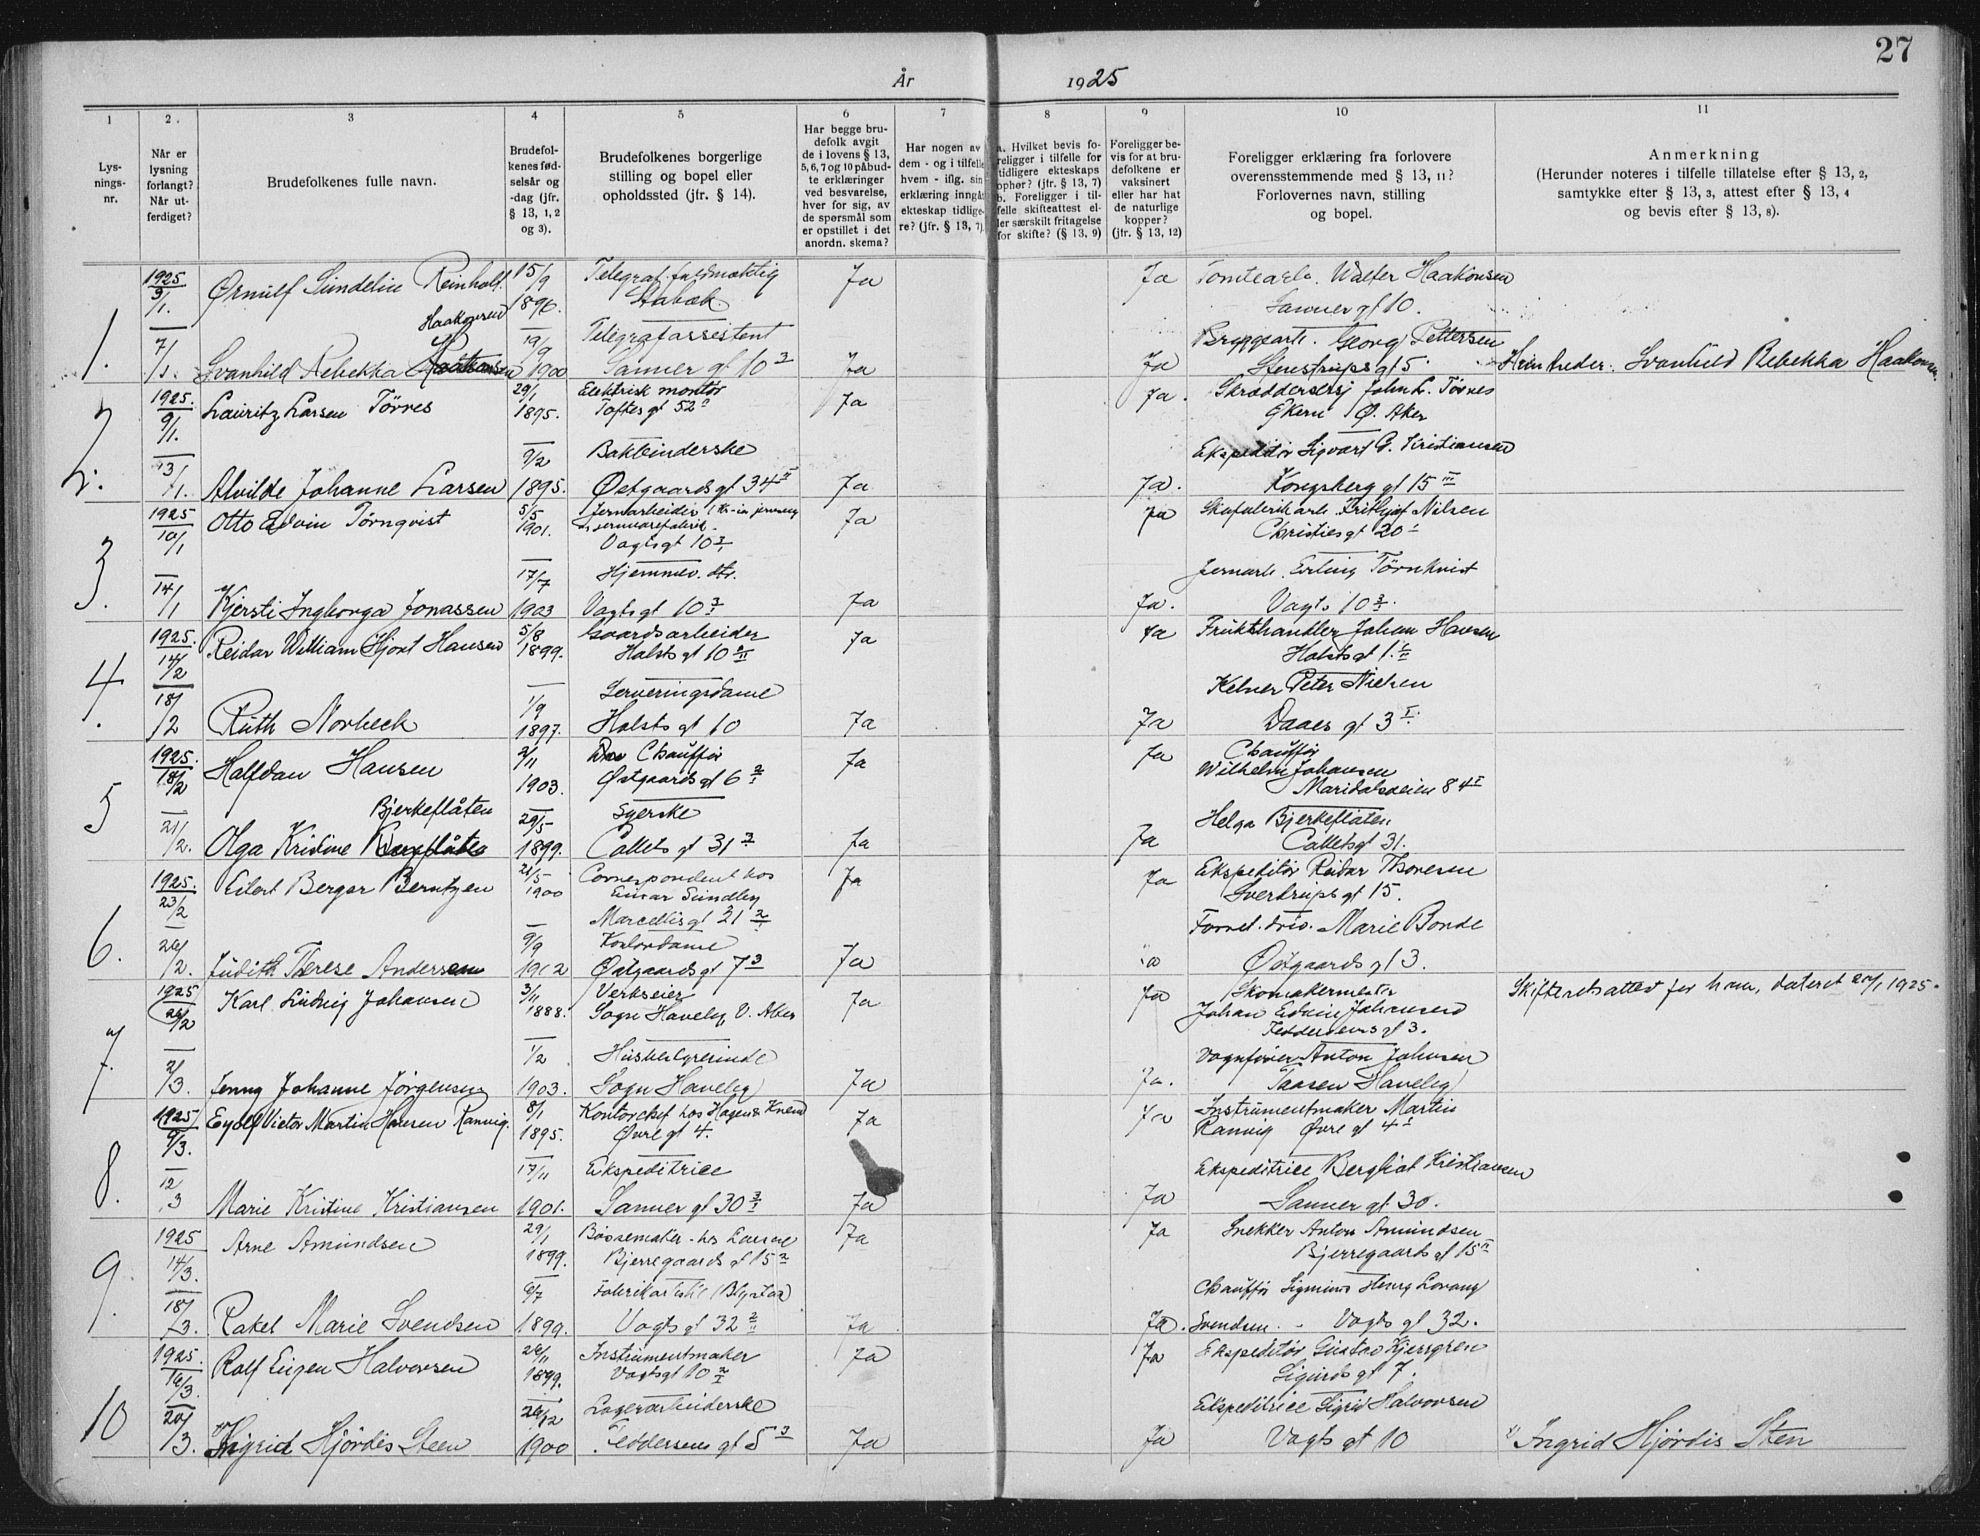 27
År 1925
1 2. 3 4 5 6 7 8 9 10 11
Lys-
nings-
nr.
Når er
lysning
forlangt?
Når ut-
ferdiget?
Brudefolkenes fulle navn.
Brudefol-
kenes fød-
selsår og
-dag (jfr.
§ 13, 1, 2
og 3).
Brudefolkenes borgerlige
stilling og bopel eller
opholdssted (jfr. § 14).
Har begge bru-
defolk avgit
de i lovens § 13,
5, 6, 7 og 10 påbud-
te erklæringer
ved besvarelse,
hver for sig, av
de spørsmål som
er opstillet i det
anordn. skema?
Har nogen av
dem - og i tilfelle
hvem - iflg. sin
erklæring inngåt
ekteskap tidlige-
re? (jfr. § 13, 7).
a. Hvilket bevis fo-
religger i tilfelle for
tidligere ekteskaps
ophør? (jfr. § 13, 7)
b. Foreligger i til-
felle skifteattest el-
ler særskilt fritagelse
for skifte? (§ 13, 9)
Foreligger be-
vis for at bru-
defolkene er
vaksinert
eller har hat
de naturlige
kopper?
(jfr. § 13, 12)
Foreligger erklæring fra forlovere
overensstemmende med § 13, 11?
Forlovernes navn, stilling
og bopel.
Anmerkning
(Herunder noteres i tilfelle tillatelse efter § 13, 2,
samtykke efter § 13, 3, attest efter § 13, 4
og bevis efter § 13, 8).
1.
1925 3/1. Ørnulf Sundelin Reinholt 15/9 1896. Telegraf.fuldmæktig Ja Ja Walter Haakonsen
Stabæk. Sanner gt 10.
Haakonsen
Telegrafassistent Georg Pettersen
7/1. Svanhild Rebekka 19/9 1900 Sanner gt 10 3 Ja Ja Stenstrups gt 5 Hun heder: Svanhild Rebekka Haakonsen
2.
1925. 9/1. Lauritz Larsen Tørnes 29/1 1895. Elektrisk montør Ja Ja. John L. Tørnes
Toftes gt 52 Ø. Aker
9/2 Bokbinderske Ekspeditør Sigvart G. Kristiansen
13/1. Alvilde Johanne Larsen 1895. Østgaards gt 34 II Ja Ja. Kongsberg gt 15 III
3.
1925 10/1 Otto Edvin Törnqvist 5/5 1901. Jernarbeider Ja Ja Frithjof Nilsen
Christies gt 20
Vogts gt 10 3
17/7 Hjemmev. dtr. Jernarb. Erling Törnkvist
14/1 Kjersti Ingborga Jonassen 1903 Vogts gt 10 3 Ja Ja. Vogts 10 3.
4.
1925. 14/2 Reidar William Hjort Hansen 5/8 1899. Gaardsarbeider Ja Ja Frukthandler Johan Hansen
Holsts gt 10 II Holsts gt 1.
Serveringsdame Kelner Peter Nielsen
18/2 Ruth Norbeck 1/9 1897. Holsts gt 10 Ja Ja Daaes gt 3 I.
5
1925. 18/2 Halfdan Hansen 2/11 1903. Chauffør Ja Ja Chauffør
Østgaards gt 6 2 Wilhelm Johansen
Maridalsveien 84 I
Bjerkeflåten
Syerske Helga Bjerkeflåten
21/2. Olga Kristine 29/5 1899. Collets gt 31 3 Ja Ja Collets gt 31.
6.
1925. 23/2 Eilert Berger Berntzen 21/5 1900 Correspondent hos Ja Ja Ekspeditør Reidar Thoresen
Einar Sundby Sverdrups gt 15.
Marcellis gt 21 2
Kontordame Forret. driv. Marie Bonde
26/2. Judith Therese Andersen 9/9 1902 Østgaards gt 7 3 Ja Ja Østgaards gt 3.
7.
1925 26/2 Karl Ludvig Johansen 3/11 1888. Verkseier Ja Ja Skomakermester Skifteretsattest for ham, dateret 20/1 1925.
Sogn Haveby, V. Aker Johan Edvin Johansen
Feddersens gt 3.
Husbestyrerinde Vognfører Anton Johnsen
2/3. Jenny Johanne Jørgensen 1/2 1903. Sogn Haveby Ja Ja. Taasen Haveby
8.
1925 9/3. Eyolf Victor Martin Hansen Rannig. 8/1 1895. Kontorchef hos Hagen & Knem Ja Ja Instrumentmaker Martin
Øvre gt 4. Rannig Øvre gt 4
Ekspeditrice Ekspeditrice Bergliot Kristiansen
12/3 Marie Kristine Kristiansen 17/11 1901. Sanner gt 30 3 Ja Ja Sanner gt 30.
9.
1925 14/3. Arne Amundsen 29/1 1899. Bøssemaker Ja Ja Snekker Anton Amundsen
Bjerregaards gt 15 2 Bjerregaards gt 15 II
6/7 Chauffør Sigmund Henry Lorang
18/3. Rakel Marie Svendsen 1899. Vogts gt 32 2 Ja Ja. Svendsen. Vogts gt 32.
10
1925. 16/3. Rolf Eugen Halvorsen 26/11 1899. Instrumentmaker Ja Ja Ekspeditør Gustav Kjerrgren
Vogts gt 10 2 Sigurds gt 7.
Lagerarbeiderske Ekspeditrice Sigrid Halvorsen
20/3. Ingrid Hjördis Steen 26/12 1900 Feddersens gt 5 3 Ja Ja Vogts gt 10 Ingrid Hjördis Sten